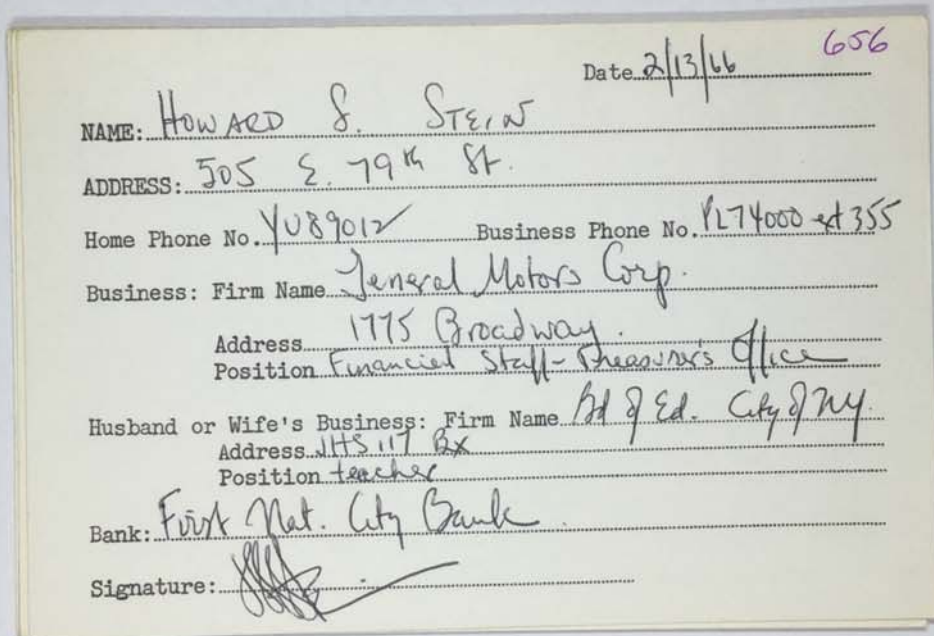 656
Date 2/13/66
NAME: HOWARD S. STEIN
ADDRESS: 505 E. 79th St.
Home Phone No. YU89012 Business Phone No. PL74000 ext 355
Business: Firm Name General Motors Corp.
Address 1775 Broadway.
Position Financial Staff - Treasurer's Office
Husband or Wife's Business: Firm Name Bd of Ed. City of NY.
Address JHS 117 Bx
Position teacher
Bank: First Nat. City Bank
Signature: